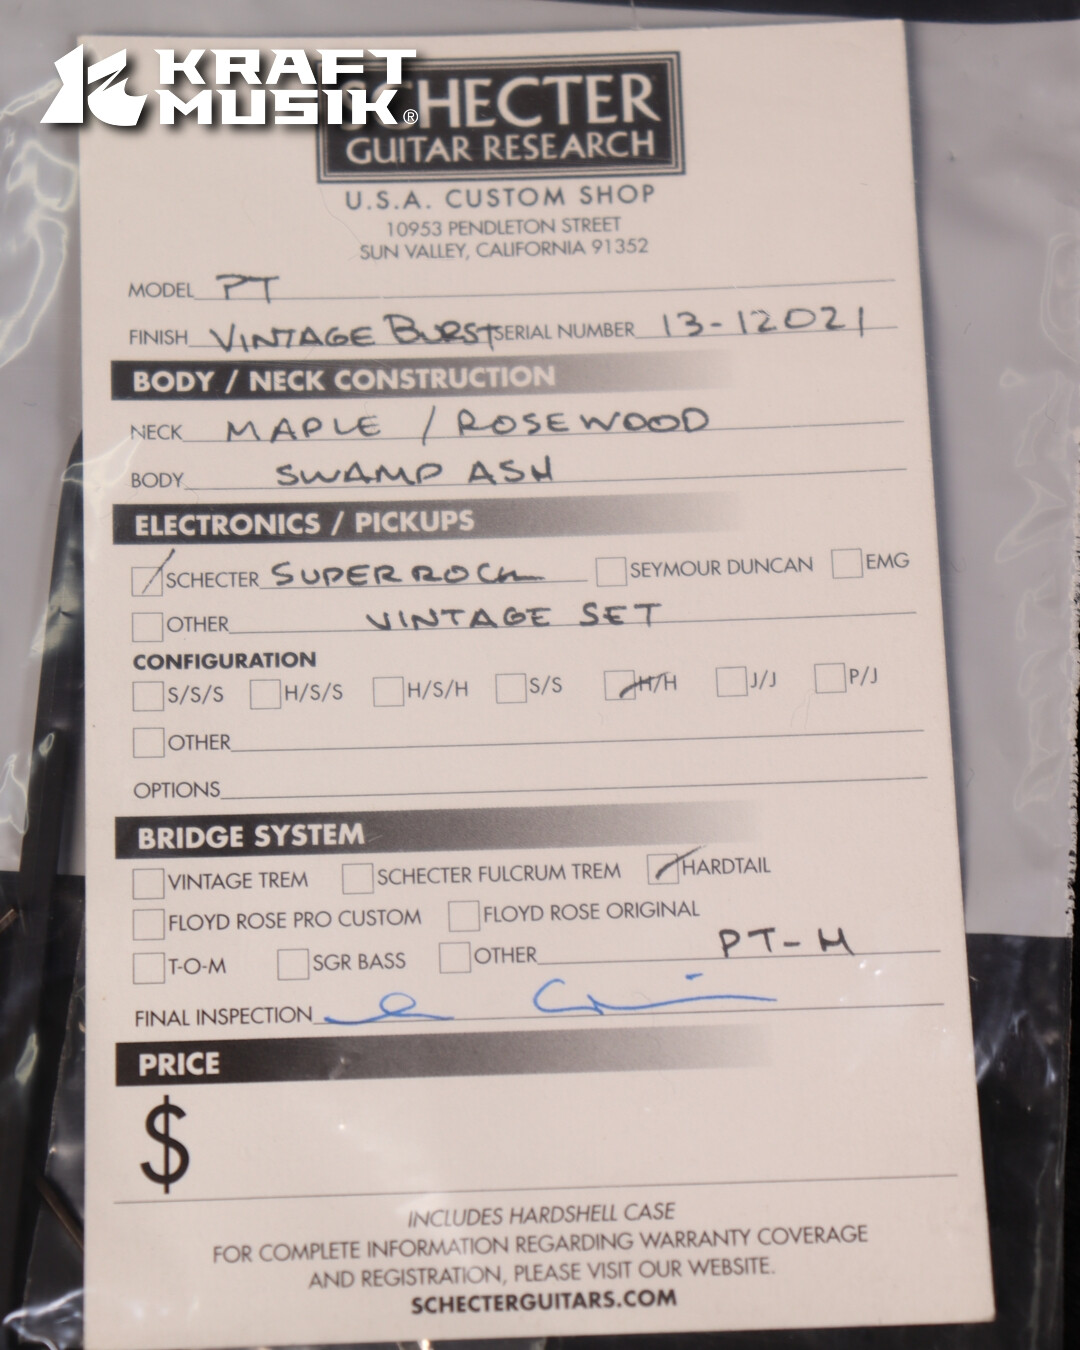 KRAFT
MUSIK®
SCHECTER
GUITAR RESEARCH
U.S.A. CUSTOM SHOP
10953 PENDLETON STREET
SUN VALLEY, CALIFORNIA 91352
MODEL PT
FINISH VINTAGE BURST SERIAL NUMBER 13-12021
BODY / NECK CONSTRUCTION
NECK MAPLE / ROSEWOOD
BODY SWAMP ASH
ELECTRONICS / PICKUPS
SCHECTER SUPERROCK SEYMOUR DUNCAN EMG
OTHER VINTAGE SET
CONFIGURATION
S/S/S H/S/S H/S/H S/S H/H J/J P/J
OTHER
OPTIONS
BRIDGE SYSTEM
VINTAGE TREM SCHECTER FULCRUM TREM HARDTAIL
FLOYD ROSE PRO CUSTOM FLOYD ROSE ORIGINAL
T-O-M SGR BASS OTHER PT-H
FINAL INSPECTION
PRICE
$
INCLUDES HARDSHELL CASE
FOR COMPLETE INFORMATION REGARDING WARRANTY COVERAGE
AND REGISTRATION, PLEASE VISIT OUR WEBSITE.
SCHECTERGUITARS.COM